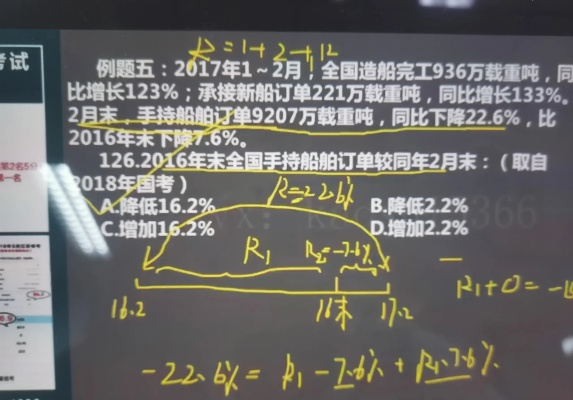 考试
R=1+2-1,12
例题五：2017年1～2月，全国造船完工936万载重吨，同
比增长123%；承接新船订单221万载重吨，同比增长133%。
2月末，手持船舶订单9207万载重吨，同比下降22.6%，比
2016年末下降7.6%。
126.2016年末全国手持船舶订单较同年2月末：（取自
2018年国考）
第2名5分
第一名
R=22.6%
A.降低16.2%
B.降低2.2%
C.增加16.2%
D.增加2.2%
R₁
R₂=-7.6%
16.2
16末
17.2
R₁+0=-1
-22.6%=R₁-7.6%+R₁·7.6%